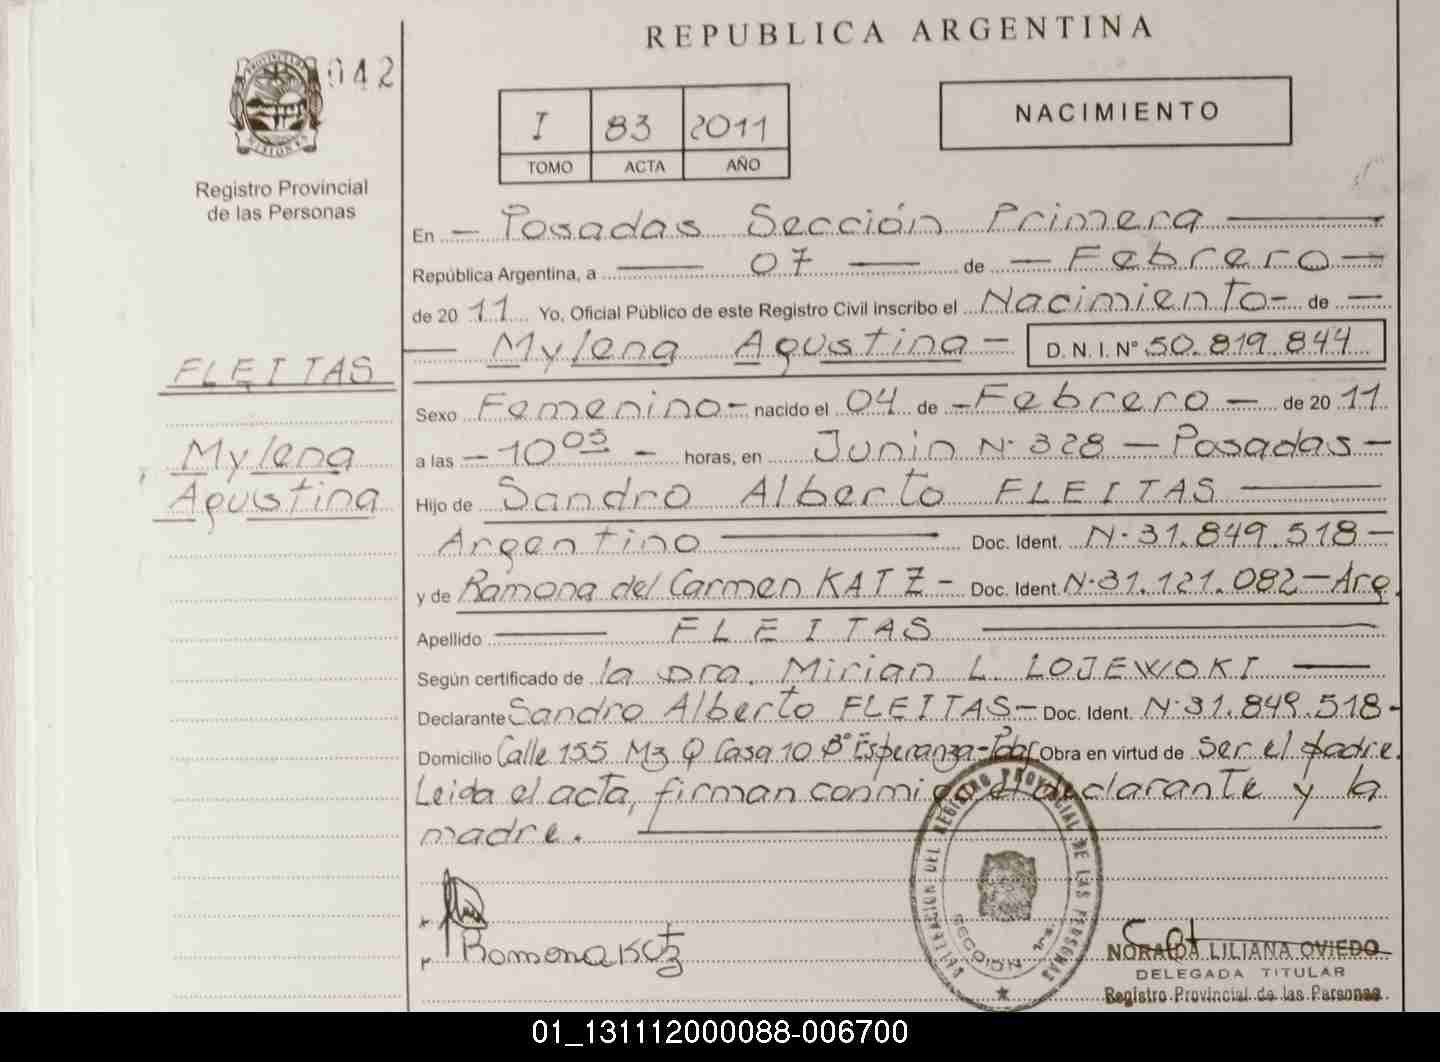 REPUBLICA ARGENTINA
042
PROVINCIA DE
MISIONES
Registro Provincial
de las Personas
I 83 2011
TOMO ACTA AÑO
NACIMIENTO
En - Posadas Sección Primera
República Argentina, a 07 de - Febrero -
de 20 11 Yo, Oficial Público de este Registro Civil inscribo el Nacimiento - de -
- Mylena Agustina - D.N.I. Nº 50.819.844
FLEITAS
Mylena
Agustina
Sexo Femenino - nacido el 04 de - Febrero - de 20 11
a las - 10 05 - horas, en Junin N· 328 - Posadas -
Hijo de Sandro Alberto FLEITAS
Argentino Doc. Ident. N·31.849.518 -
y de Ramona del Carmen KATZ - Doc. Ident. N·31.121.082 - Arg.
Apellido FLEITAS
Según certificado de la Dra. Mirian L. LOJEWOKI
Declarante Sandro Alberto FLEITAS - Doc. Ident. N·31.849.518 -
Domicilio Calle 155 Mz Q Casa 10 Bº Esperanza - Pdas Obra en virtud de ser el padre.
Leida el acta, firman conmigo el declarante y la
madre.
Ramona Katz
DELEGACION DEL REGISTRO PROVINCIAL DE LAS PERSONAS
SECCION 1ra.
NORALDA LILIANA OVIEDO
DELEGADA TITULAR
Registro Provincial de las Personas
01_131112000088-006700